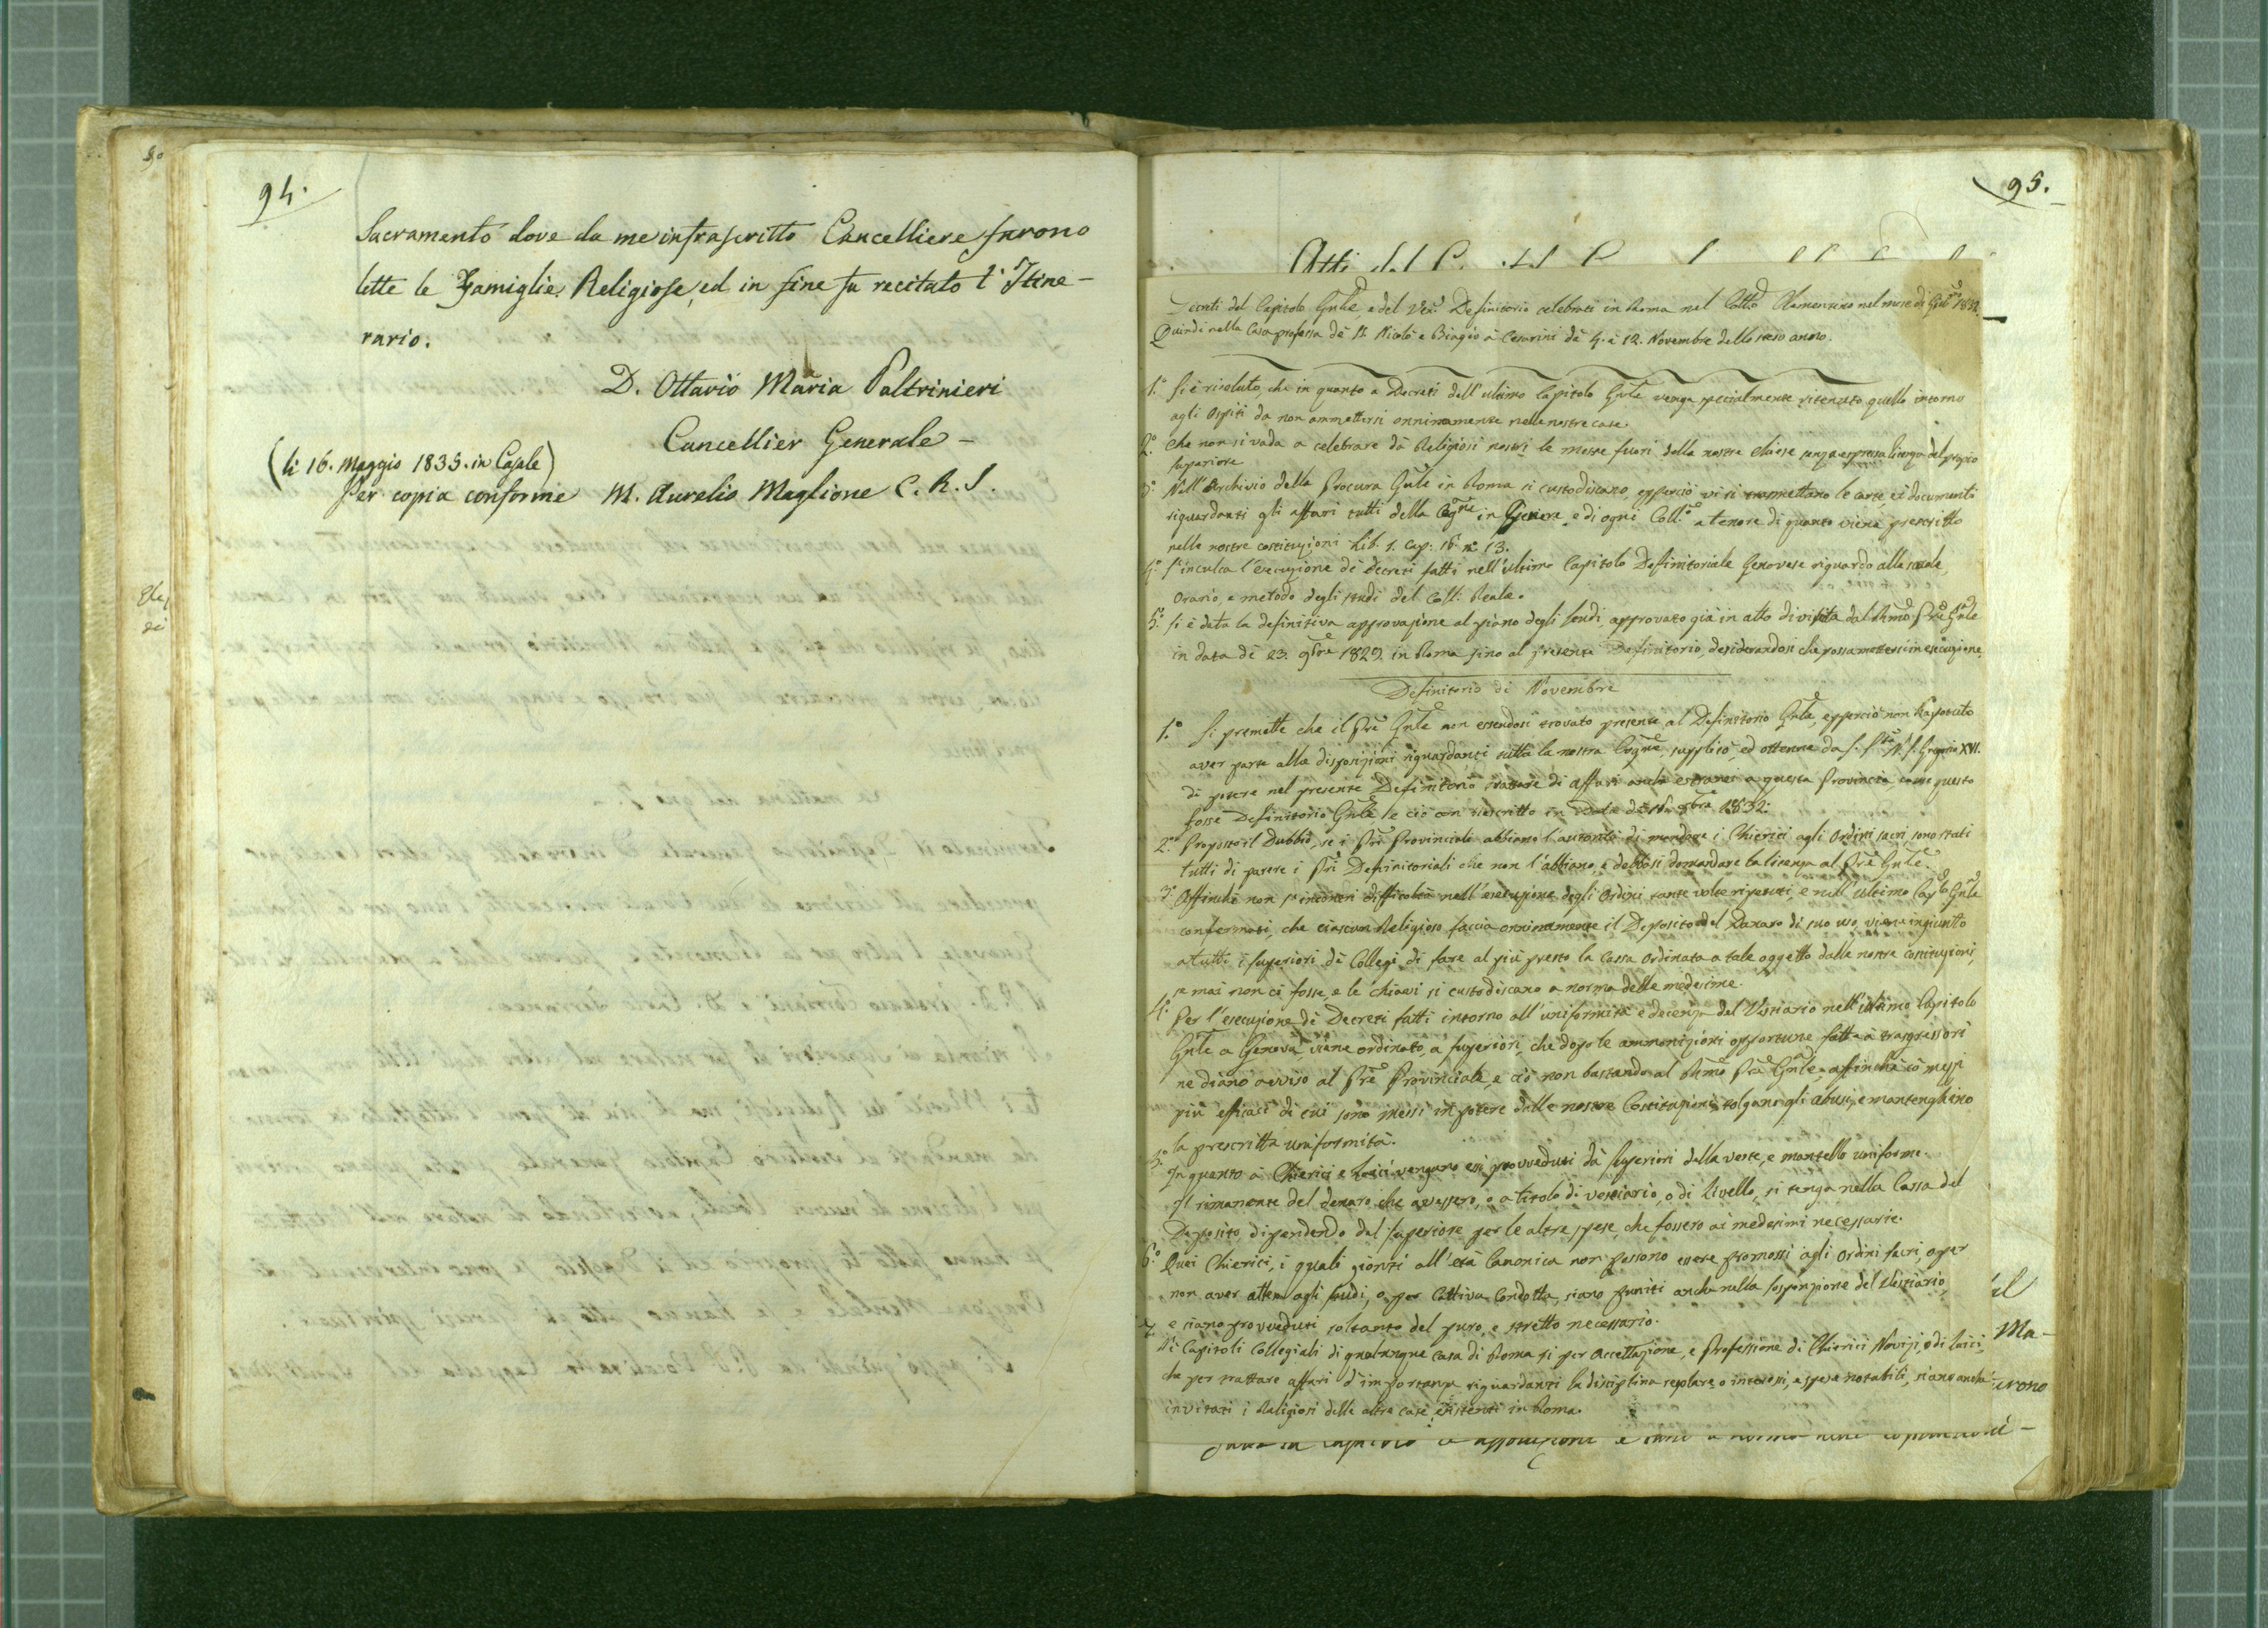 94.
Sacramento dove da me infrascritto Cancelliere furono
lette le Famiglie Religiose, ed in fine fu recitato l'Itine-
rario.
D. Ottavio Maria Paltrinieri
Cancellier Generale -
(li 16. Maggio 1835. in Casale)
Per copia conforme M. Aurelio Maglione C. R. S.
95.
Atti del
Decreti del Capitolo Gnle, e del Ven. Definitorio celebrati in Roma nel Collo Clementino nel mese di 1832.
Quindi nella Casa professa de' SS. Nicolò e Biagio a' Cesarini de' 4. e 12. Novembre dello stesso anno.
1.° Si è risoluto, che in quanto a Decreti dell'ultimo Capitolo Gnle venga specialmente ritenuto quello intorno
agli Ospiti da non ammettersi onninamente nelle nostre case.
2.° Che non si vada a celebrare da' Religiosi nostri le messe fuori delle nostre chiese senza espressa licenza del proprio
Superiore
3.° Nell'Archivio della Procura Gnle in Roma si custodiscano, epperciò vi si trasmettano le carte, et documenti
riguardanti gli affari tutti della Cogne in Genere, e di ogni Coll.° a tenore di quanto viene prescritto
nelle nostre costituzioni Lib. 1. Cap: 16. n. 13.
4.° S'inculca l'esecuzione de' decreti fatti nell'ultimo Capitolo Definitoriale Genovese riguardo alle scuole,
Orario, e metodo degli studi del Coll: Reale.
5.° Si è data la definitiva approvazione al piano degli studi, approvato già in atto di visita dal Rmo Pre Gnle
in data de' 23. 9bre 1829. in Roma fino al presente Definitorio, desiderandosi che possa mettersi in esecuzione.
Definitorio di Novembre
1.° Si premette che il Pre Gnle non essendosi trovato presente al Definitorio Gnle, epperciò non ha potuto
aver parte alle disposizioni riguardanti tutta la nostra Cogne, supplicò, ed ottenne da S. Stà N. S. Gregorio XVI.
di potere nel presente Definitorio trattare di affari anche estranei a questa Provincia, come questo
fosse Definitorio Gnle, e ciò con rescritto in Data de' 8bre 1832.
2.° Proposto il Dubbio, se i Pri Provinciali abbiano l'autorità di mandare i Chierici agli Ordini sacri, sono stati
tutti di parere i Pri Definitoriali che non l'abbiano, e debbasi domandare la licenza al Pre Gnle.
3.° Affinchè non s'incontri difficoltà nell'esecuzione degli Ordini tante volte ripetuti, e nell'ultimo Caplo Gnle
confermati, che ciascun Religioso faccia onninamente il Deposito del Danaro di suo uso, viene ingiunto
a tutti i Superiori de' Collegi di fare al più presto la Cassa Ordinata a tale oggetto dalle nostre costituzioni,
se mai non ci fosse, e le chiavi si custodiscano a norma delle medesime.
4.° Per l'esecuzione de' Decreti fatti intorno all'uniformità e decenza del Vestiario nell'ultimo Capitolo
Gnle a Genova, viene ordinato a superiori, che dopo le ammonizioni opportune fatte a' trasgressori
ne diano avviso al Pre Provinciale, e ciò non bastando al Rmo Pre Gnle, affinchè co' mezzi
più efficaci di cui sono messi in potere dalle nostre Costituzioni, tolgano gli abusi, e mantenghino
la prescritta uniformità.
5.° In quanto a' Chierici e Laici vengano essi provveduti da' Superiori della veste, e mantello uniforme.
Il rimanente del denaro, che avessero, o a titolo di vestiario, o di Livello, si tenga nella Cassa del
Deposito, dipendendo dal Superiore per le altre spese, che fossero ai medesimi necessarie.
6.° Quei Chierici, i quali giunti all'età Canonica non possono essere promossi agli Ordini sacri, o per
non aver atteso agli studi, o per Cattiva Condotta, siano puniti anche nella sospensione del Vestiario,
e siano provveduti soltanto del puro, e stretto necessario.
7. Ai Capitoli Collegiali di qualunque casa di Roma si per Accettazione, e Professione di Chierici Novizi, o di laici,
che per trattare affari d'importanza riguardanti la disciplina regolare, o interessi, e spese notabili, siano anche
invitati i Religiosi delle altre case esistenti in Roma.
il
Ma-
urono